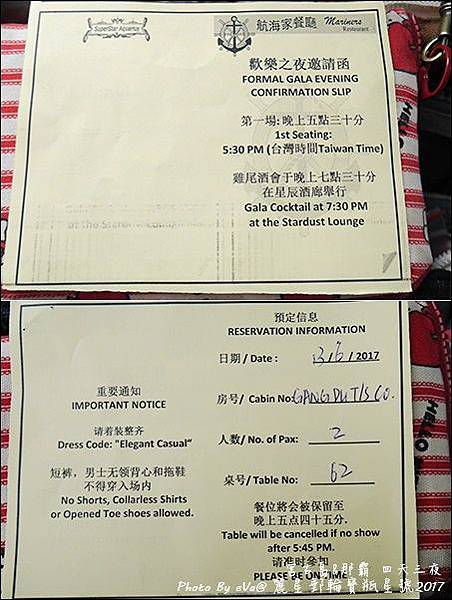 SuperStar Aquarius
航海家餐廳 Mariners
Restaurant
歡樂之夜邀請函
FORMAL GALA EVENING
CONFIRMATION SLIP
第一場: 晚上五點三十分
1st Seating:
5:30 PM (台灣時間Taiwan Time)
雞尾酒會于晚上七點三十分
在星辰酒廊舉行
Gala Cocktail at 7:30 PM
at the Stardust Lounge
重要通知
IMPORTANT NOTICE
请着装整齐
Dress Code: "Elegant Casual"
短裤，男士无领背心和拖鞋
不得穿入场内
No Shorts, Collarless Shirts
or Opened Toe shoes allowed.
預定信息
RESERVATION INFORMATION
日期 / Date : 3/6 / 2017
房号/ Cabin No:
人数/ No. of Pax: 2
桌号/ Table No: 62
餐位將会被保留至
晚上五点四十五分.
Table will be cancelled if no show
after 5:45 PM.
请准时参加
PLEASE BE ON TIME!
HELLO
HELLO
石垣島&那霸 四天三夜
Photo By eVa@ 麗星郵輪寶瓶星號2017